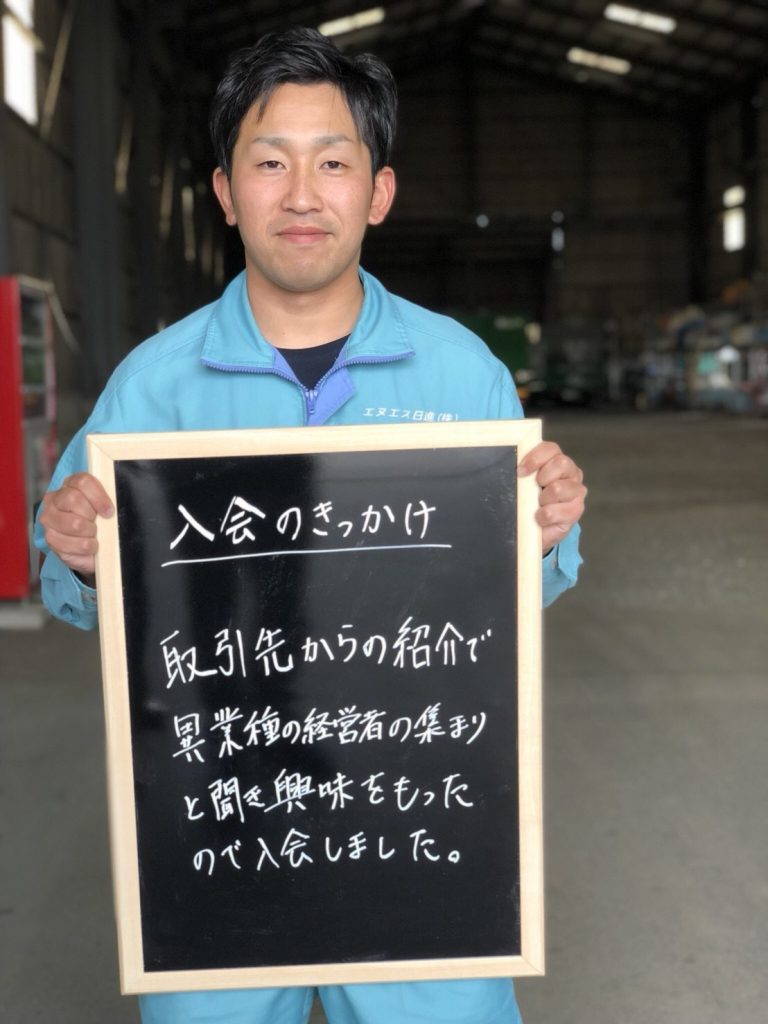 エヌエス日進(株)
入会のきっかけ
取引先からの紹介で
異業種の経営者の集まり
と聞き興味をもった
ので入会しました。